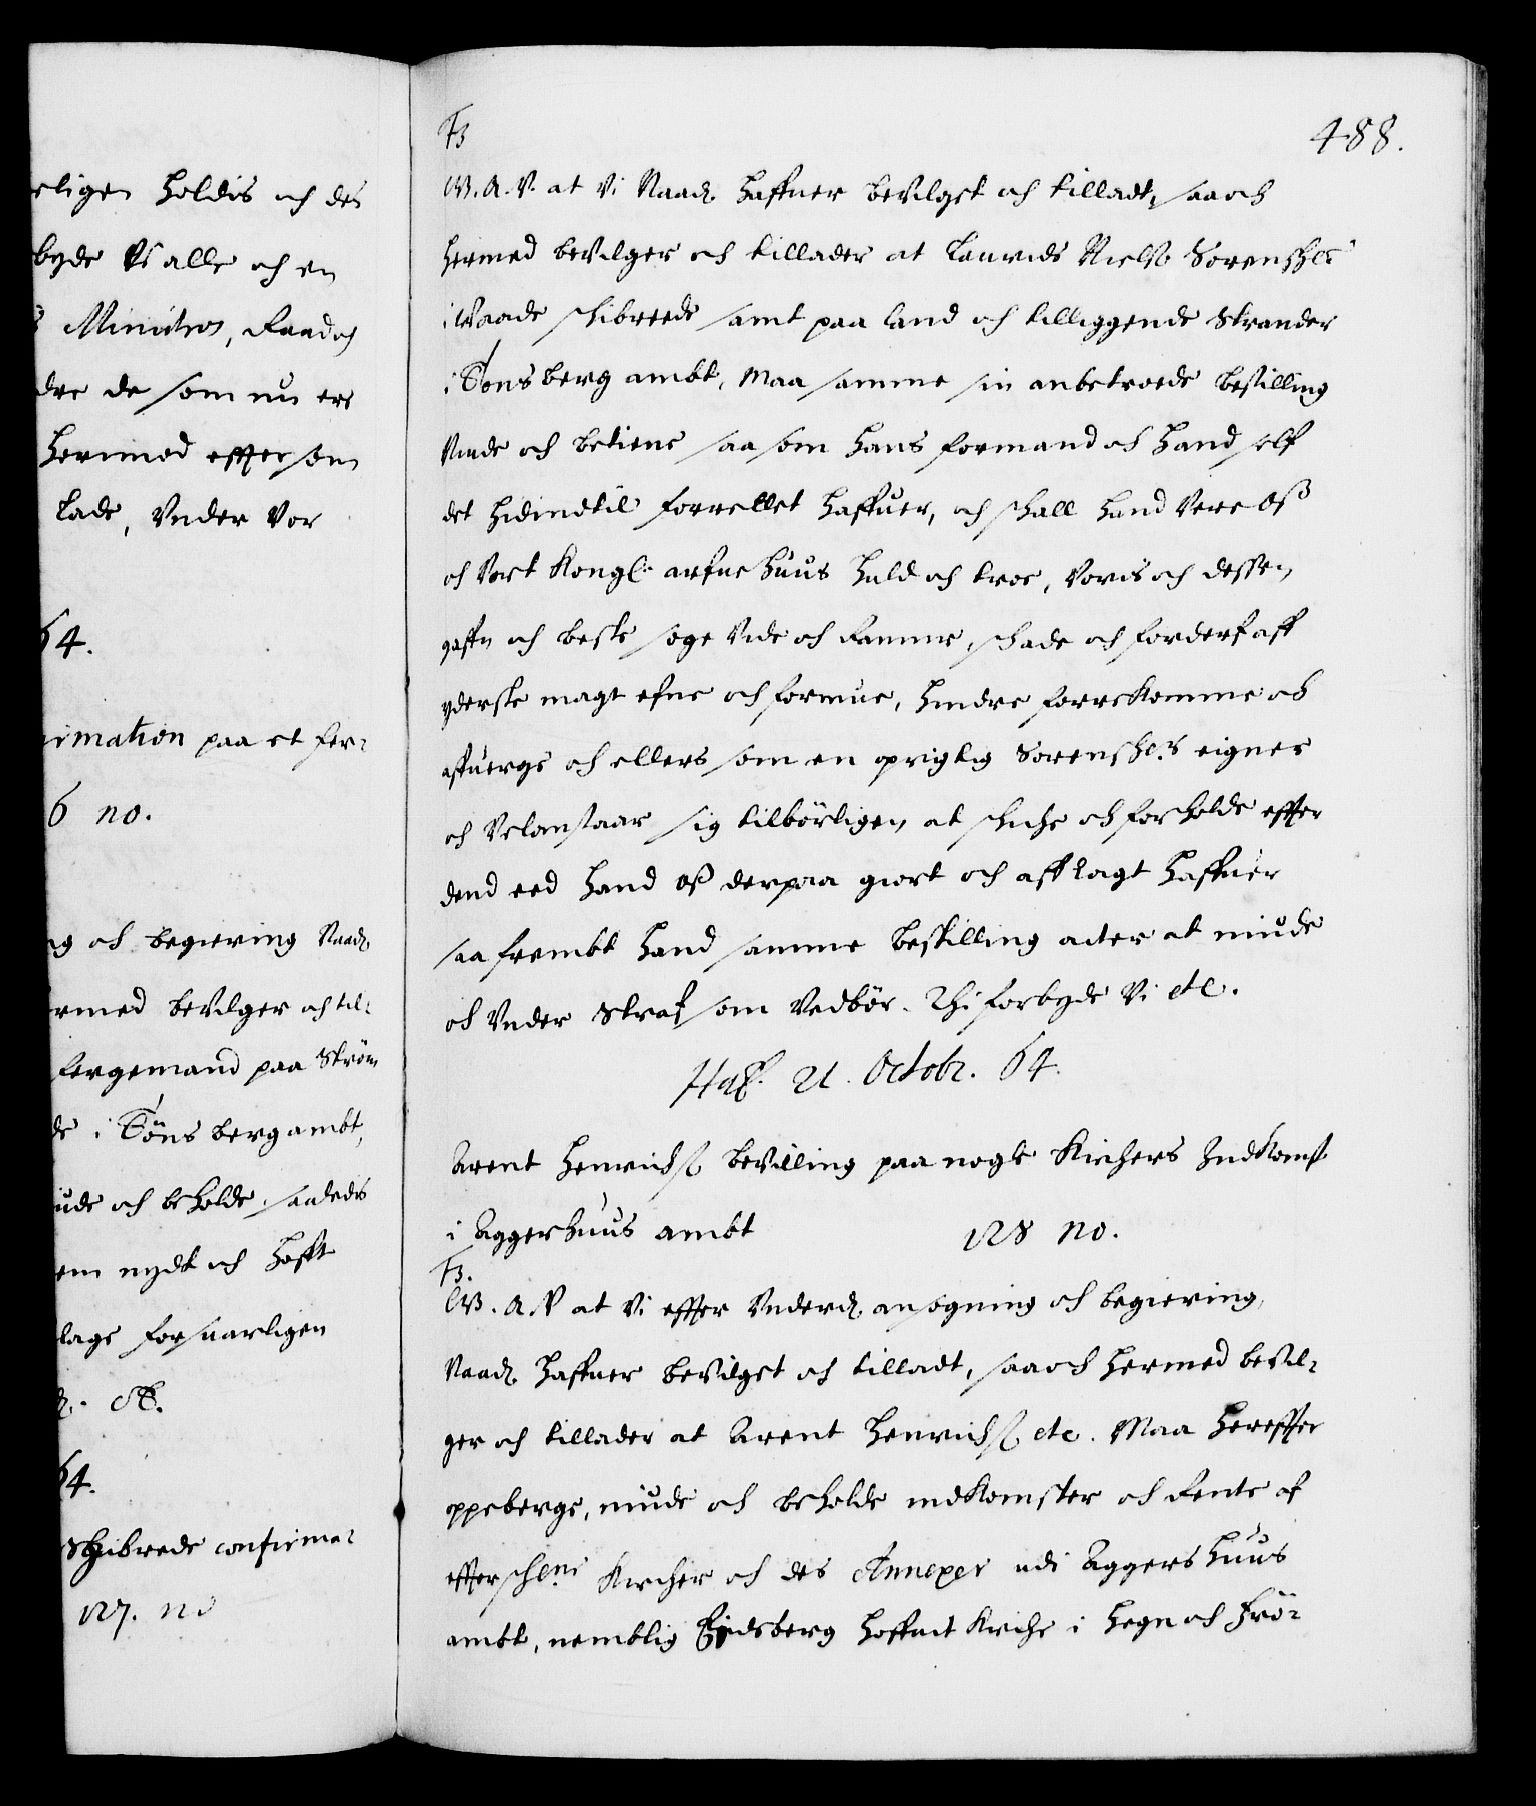 rligen holdis och des
byde Vi alle och en
Ministros, Raad och
dre de som nu ere
hermed effter som
lade, Under Vor
64.
irmation paa et fer-
6 no.
ng och begiering Naad.
ermed beVilger och til-
fergemand paa Ström
de i Töns berg ambt,
iude och beholde, saaledis
em nydt och hafft
lage forsuarligen
etc.
64.
Schibrede confirma-
127. no
F3 488.
W. A. V. at Vi Naad. haffuer beVilget och tilladt, saa och
hermed beVilger och tillader at Laurids Nielsß Sorenskr
i Waade schibrede samt paa land och tilliggende Strander
i Tons berg ambt, Maa samme sin anbetroede bestilling
Niude och betiene saa som hans formand och hand self
det hidindtil forrettet haffuer, och schall hand Vere Oß
och Vort Kongl: arfue huus huld och troe, Voris och desses
gaffn och beste søge Vide och Ramme, schade och forderf aff
yderste magt efne och formue, hindre forrekomme och
affuerge och ellers som en oprigtig Sorenskr eigner
och Velanstaar sig tilbörligen at schiche och forholde effter
dend eed hand Oß derpaa giort och afflagt haffuer
saa frembt hand samme bestilling acter at niude
och Under Straf som Vedbör. Thi forbyde Vi etc.
Haf. 21. Octobr. 64.
Arent Henrichsß beVilling paa nogle Kirchers Indkomst
i Aggershuus ambt 128 no.
F3.
W. A. V at Vi effter Underd. ansøgning och begiering,
Naad. haffuer beVilget och tilladt, saa och hermed beVil-
ger och tillader at Arent Henrichsß etc. Maa hereffter
oppeberge, niude och beholde indkomster och Rente af
effterschne Kircher och des Annexer udi Aggershuus
ambt, nemblig Eidsberg hoffuit Kirche i Hegn och Frö-